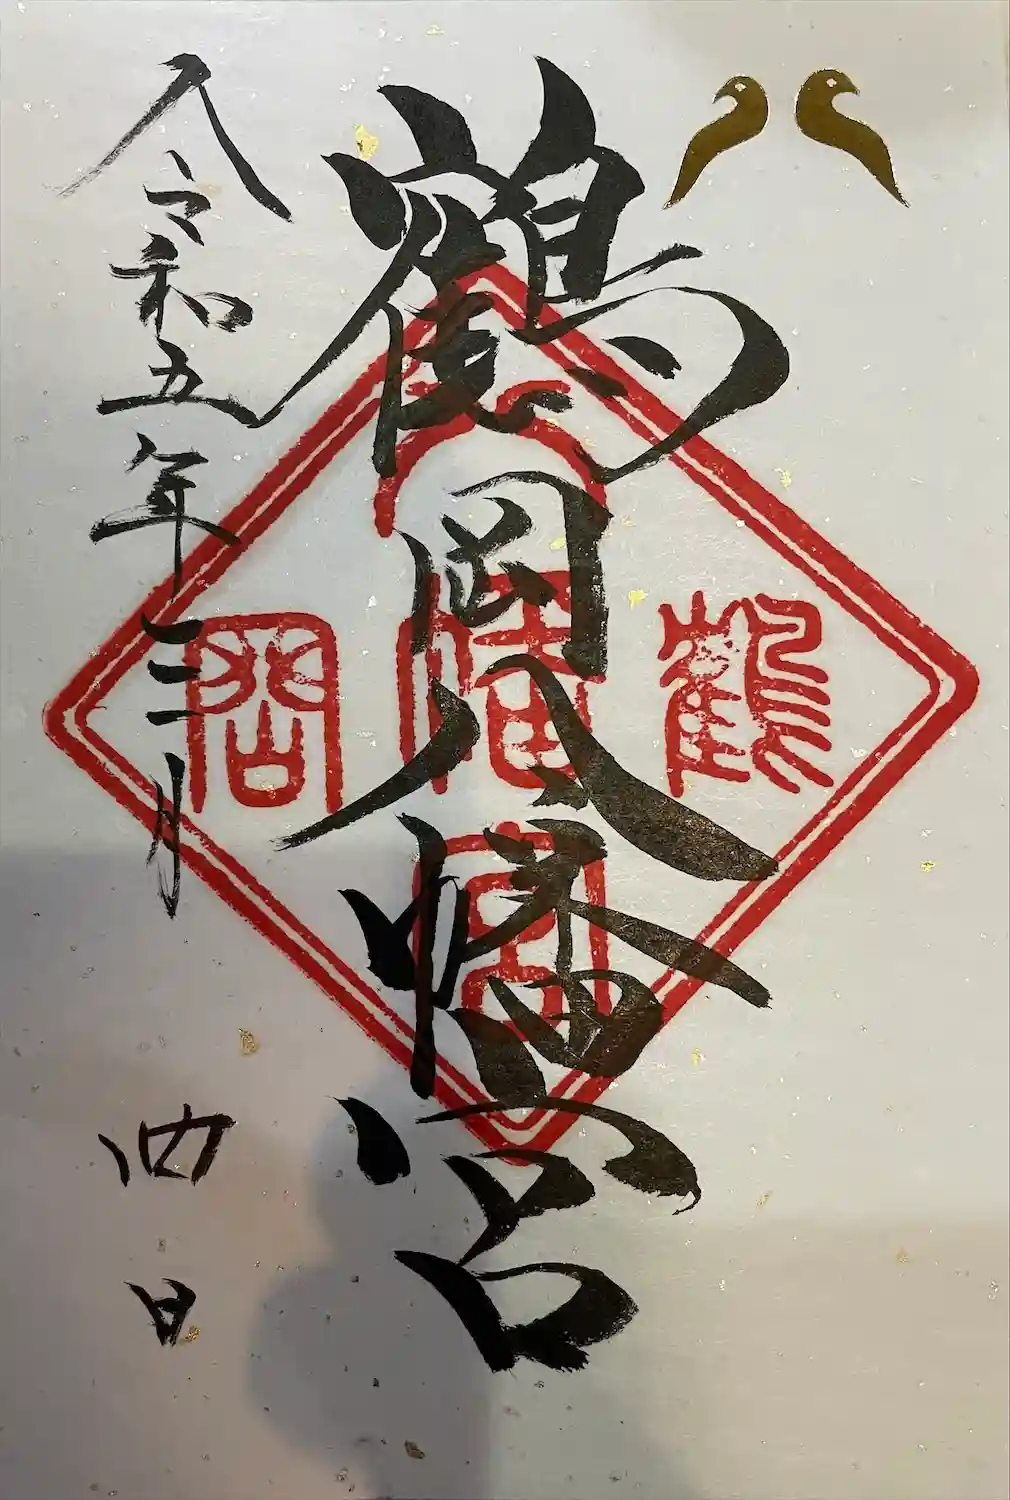 鶴岡八幡宮
鶴
八
幡
宮
岡
令和五年三月
四日